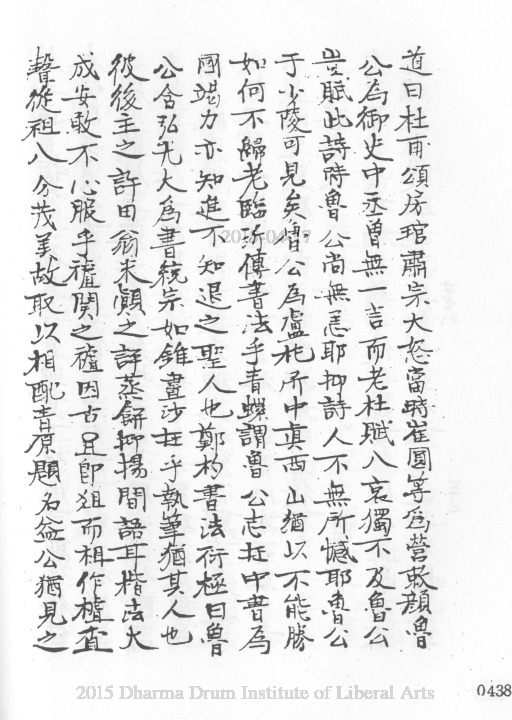 道曰杜甫頌房琯肅宗大怒當時崔圓等爲營救顏魯
公為御史中丞曽無一言而老杜賦八哀獨不及魯公
豈賦此詩時魯公尚無恙耶抑詩人不無所憾耶魯公
于少陵可見矣魯公為盧杞所中真西山猶以不能勝
如何不歸老臨沂傳書法乎青螺謂魯公志在中書為
國竭力亦知進不知退之聖人也鄭杓書法衍極曰魯
公含弘光大爲書統宗如錐畫沙在乎執筆猶其人也
彼後主之許田翁米顛之評蒸餅抑揚間語耳楷法大
成安敢不心服乎禮閱之禮因古且即狙而柤作樝査
聲從祖八分茂美故取以相配青原題名益公猶見之
2015 Dharma Drum Institute of Liberal Arts
0438